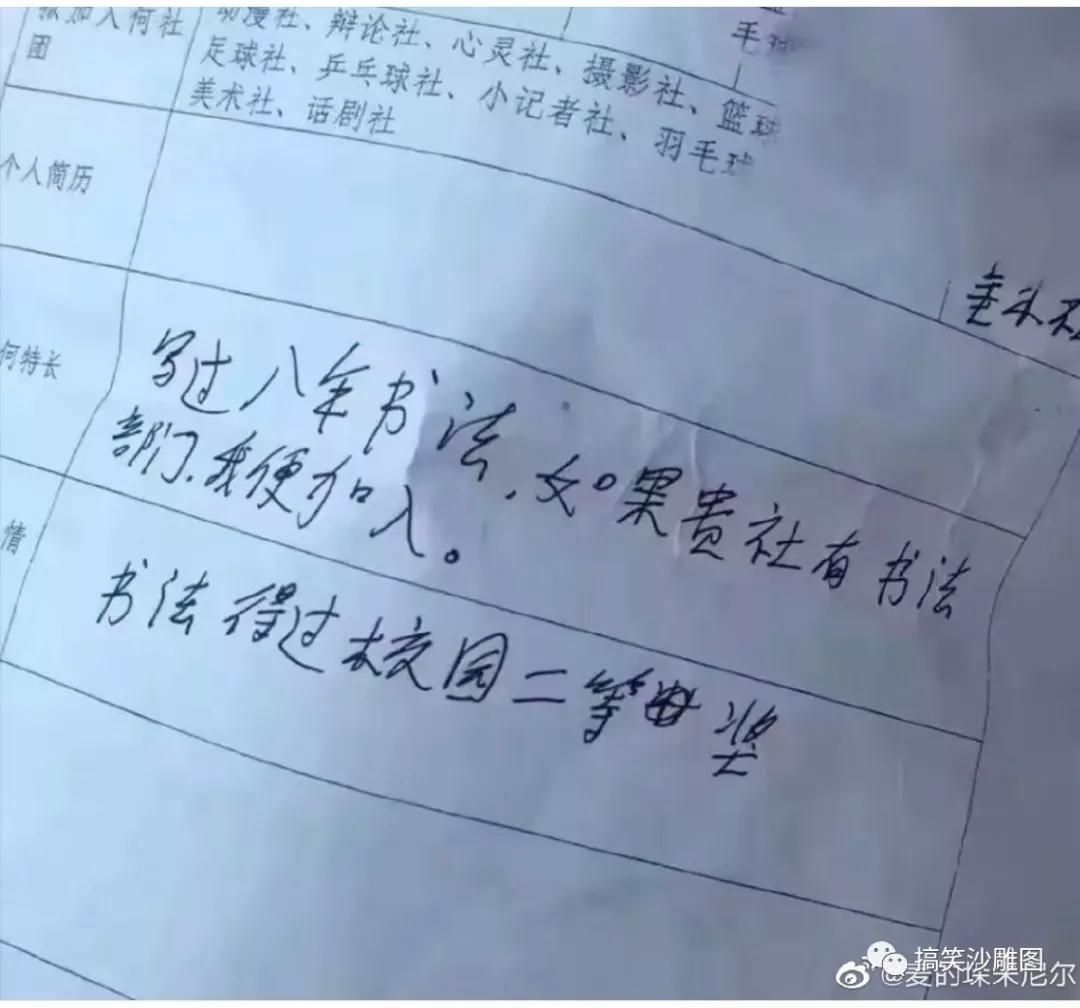 毛球
加入何社
团
动漫社、辩论社、心灵社、摄影社、篮球
足球社、乒乓球社、小记者社、羽毛球
美术社、话剧社
个人简历
何特长
写过八年书法，如果贵社有书法
部门，我便加入。
情
书法得过校园二等奖
搞笑沙雕图
@麦的垛果尼尔